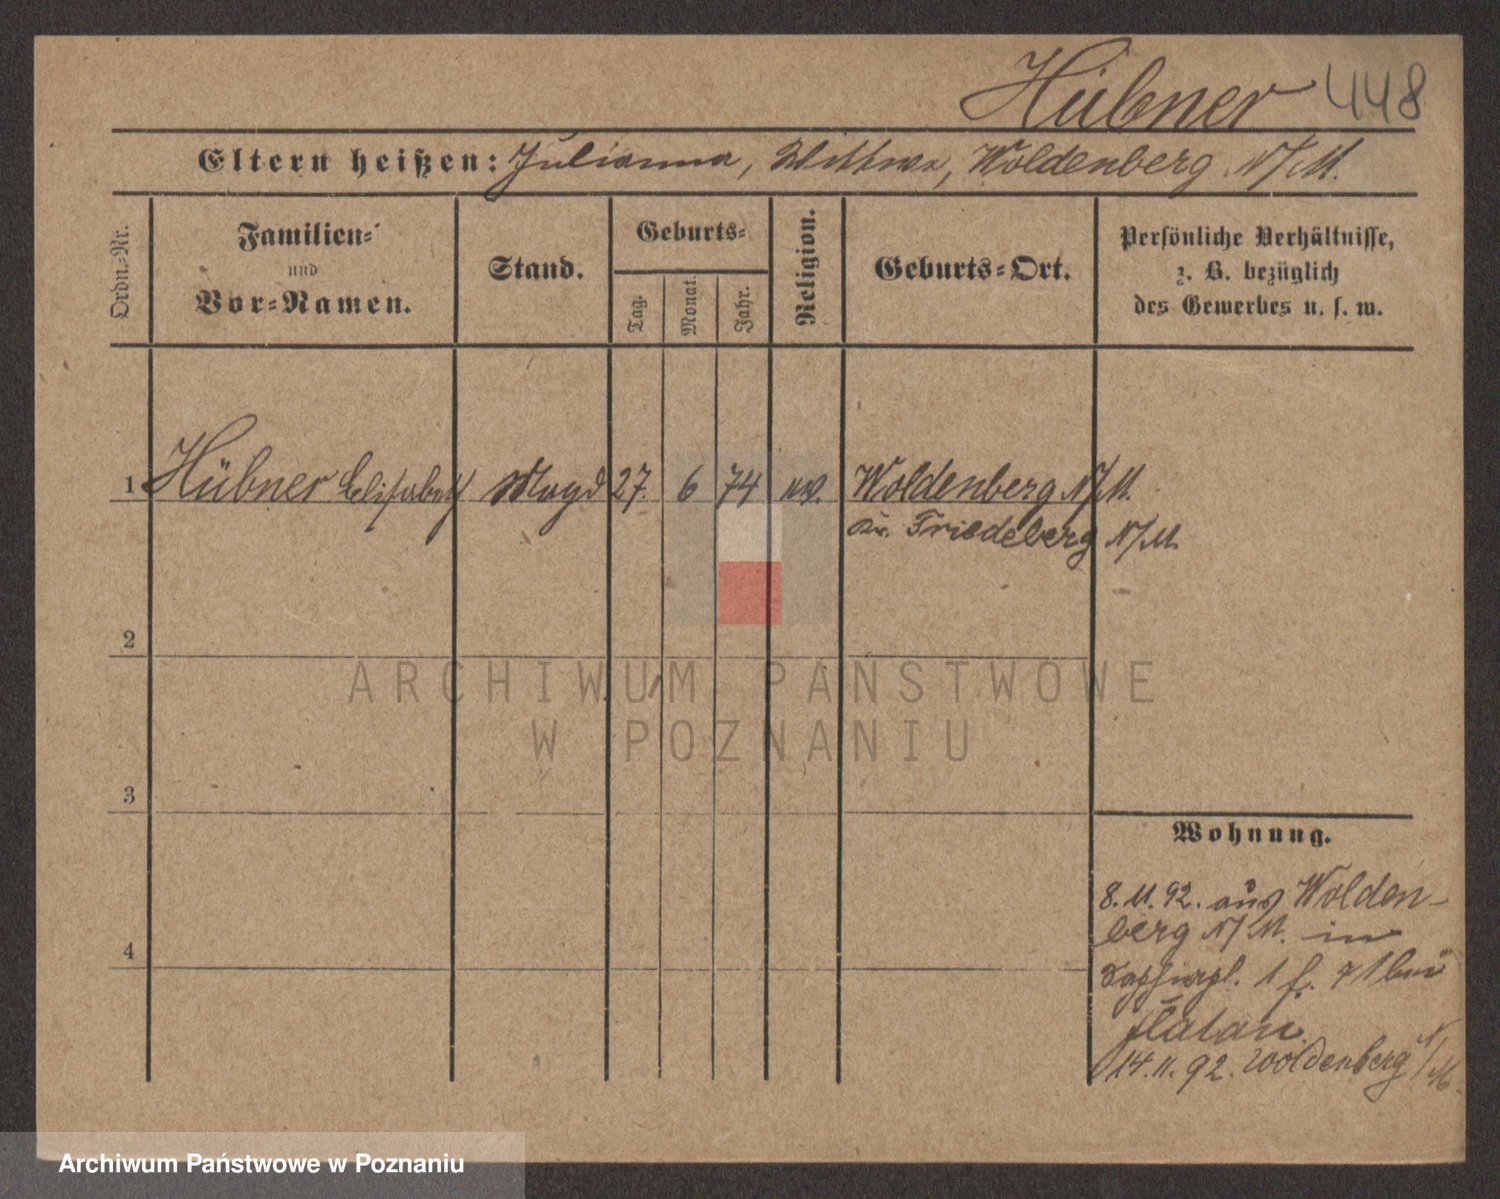 Hübner 448
Eltern heißen: Julianna, Wittwe, Woldenberg N/M.
Ordn.-Nr.
Familien-
und
Vor-Namen.
Stand.
Geburts-
Tag.
Monat.
Jahr.
Religion.
Geburts-Ort.
Persönliche Verhältnisse,
z. B. bezüglich
des Gewerbes u. s. w.
1 Hübner Elisabeth Magd 27. 6 74 ev. Woldenberg N/M.
Kr. Friedeberg N/M.
2
ARCHIWUM PAŃSTWOWE
W POZNANIU
3
Wohnung.
8.11.92. aus Wolden-
berg N/M. in
1 71 bei
4
14.11.92. Woldenberg N/M.
Archiwum Państwowe w Poznaniu